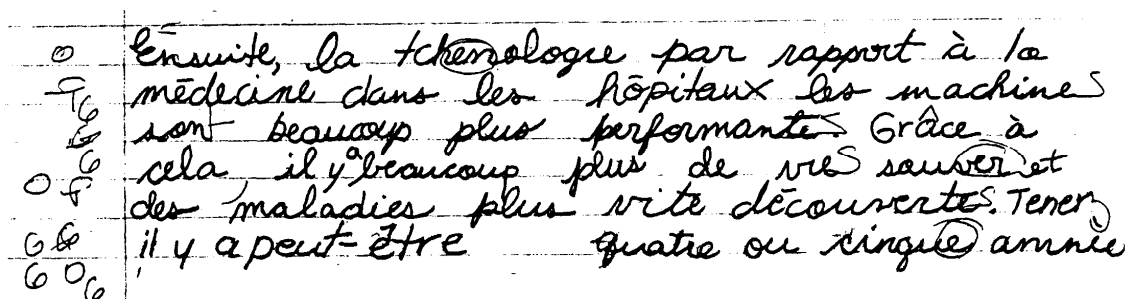 0 Ensuite, la tchenologie par rapport à la
médecine dans les hôpitaux les machines
sont beaucoup plus performantes. Grâce à
cela, il y a beaucoup plus de vies sauver et
des maladies plus vite découvertes. Tenez
il y a peut-être quatre ou cinque année